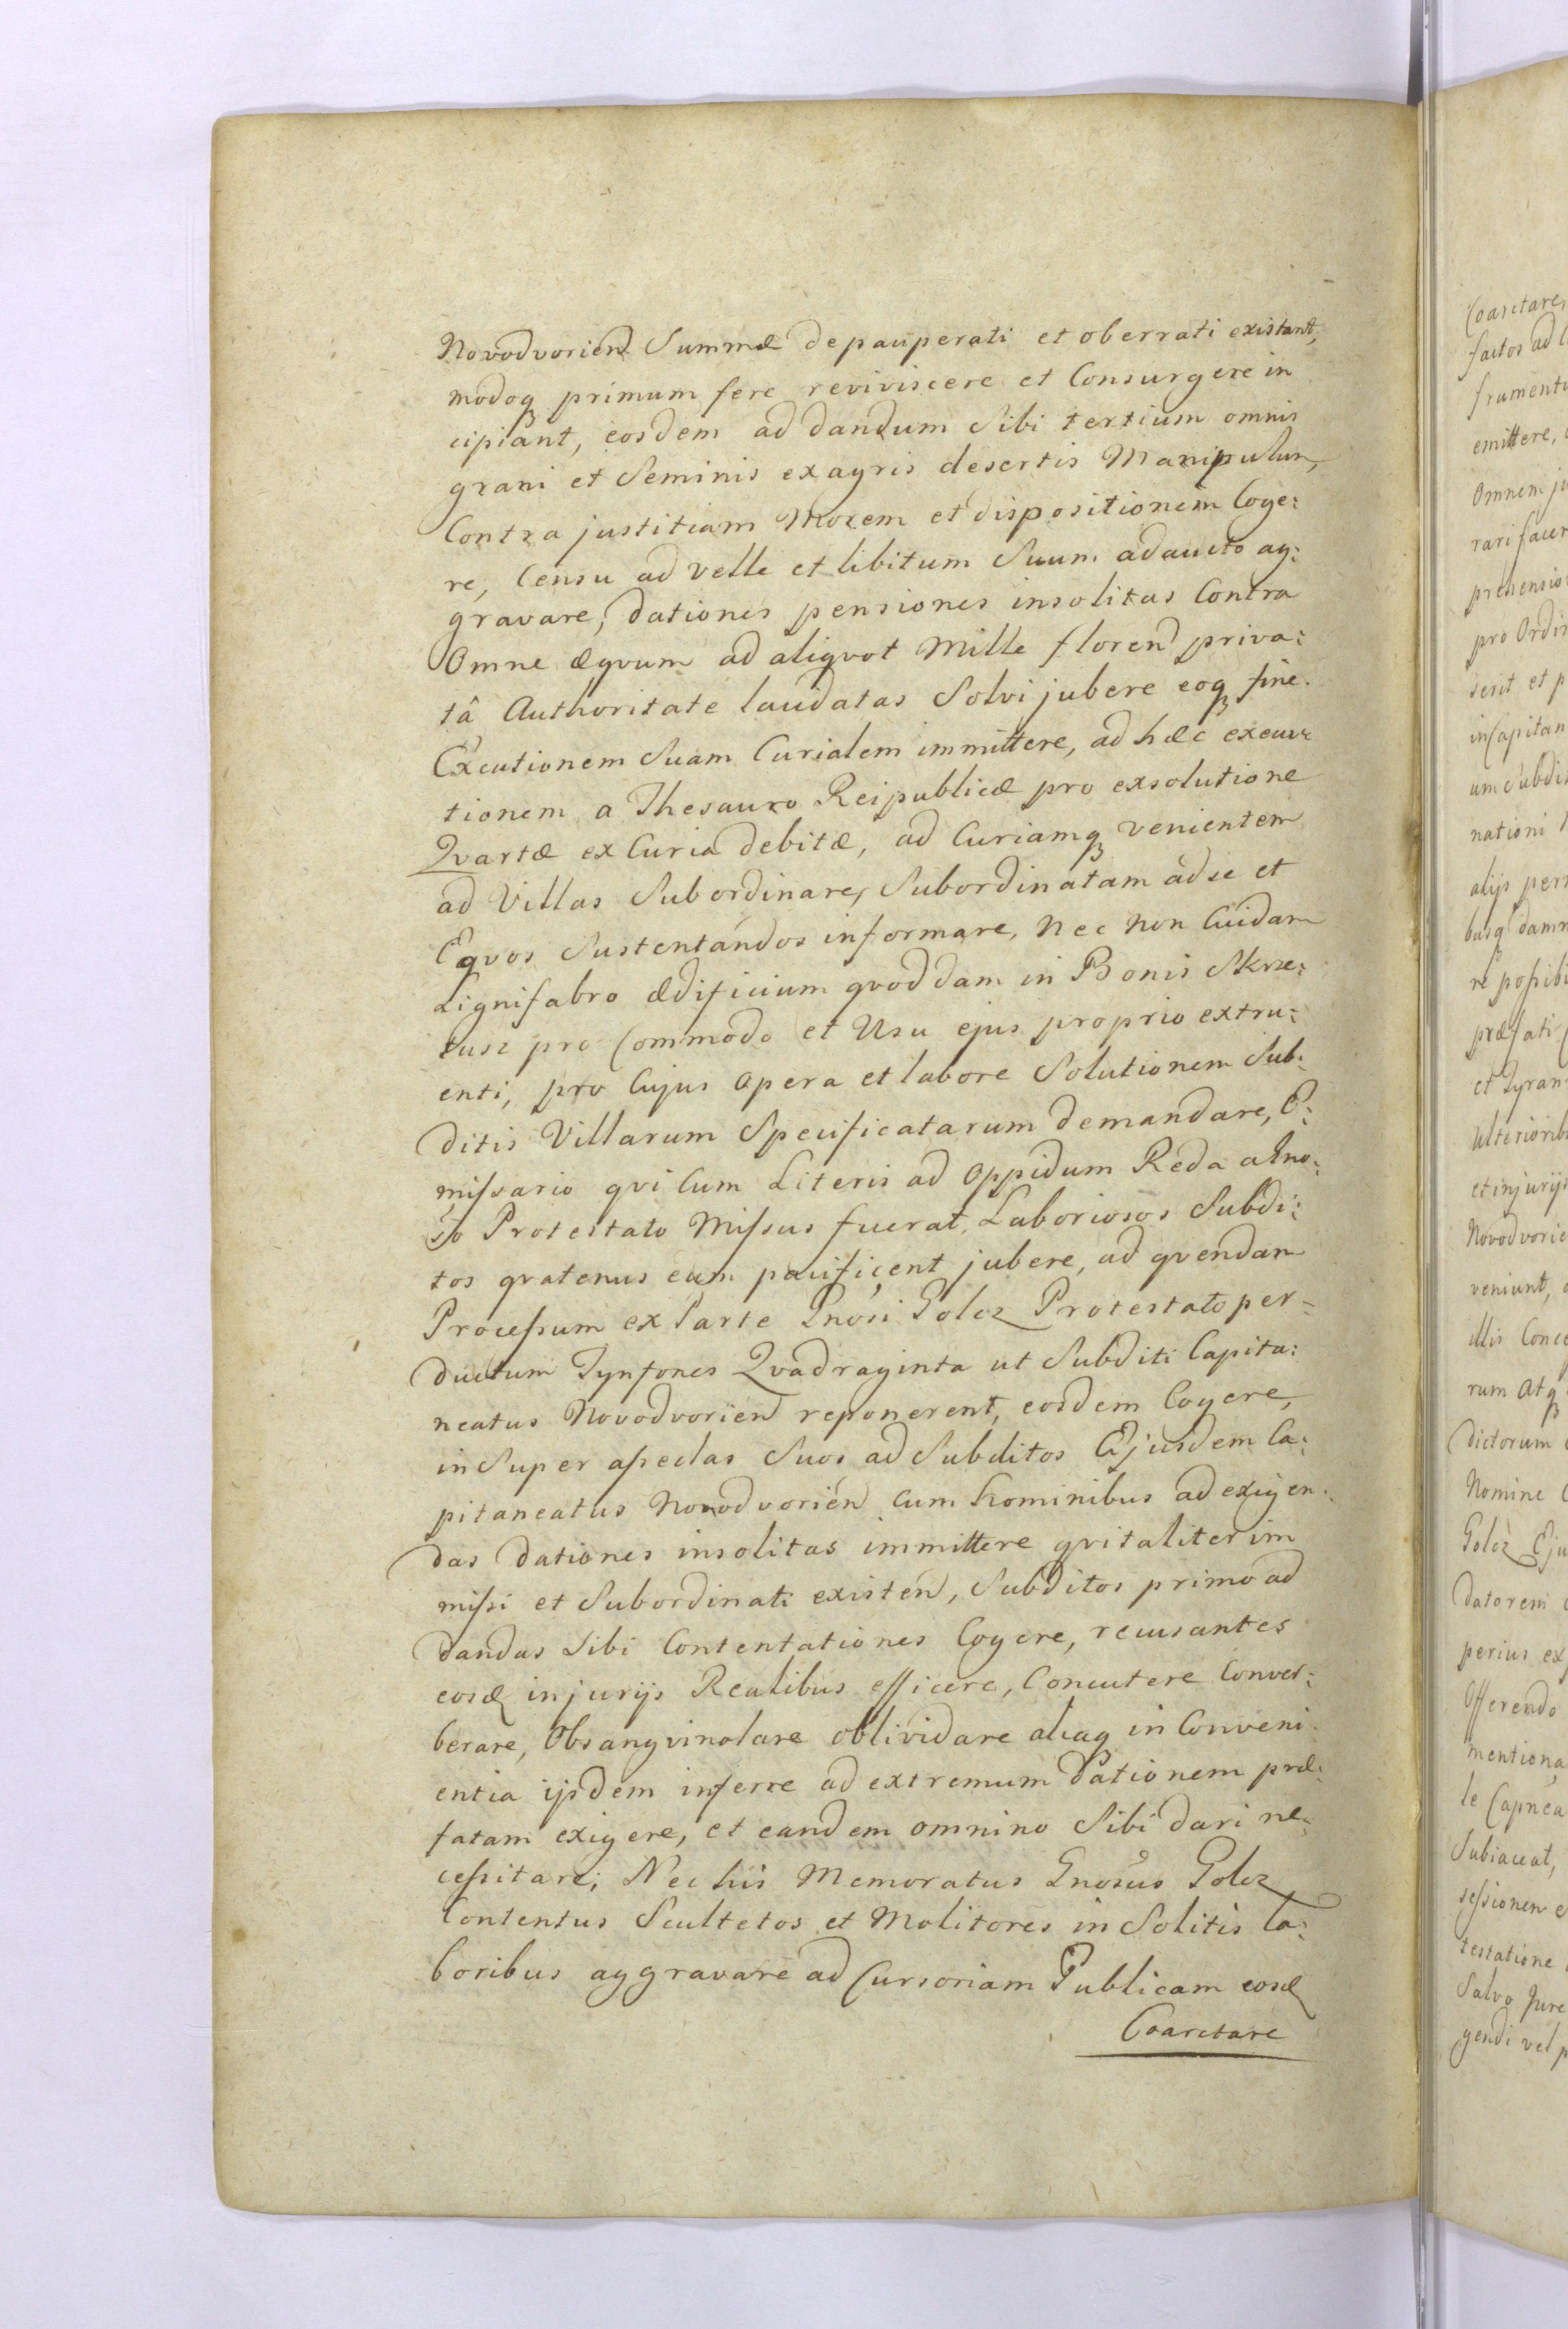 Novodvorien Summæ depauperati et oberrati existant,
modoq primum fere reviviscere et Consurgere in
cipiant, eosdem ad dandum Sibi tertium omnis
grani et Seminis ex agris desertis Manipulum,
Contra justitiam Morem et dispositionem Coge:
re, Censu ad velle et libitum Suum adaucto ag:
gravare, dationes pensiones insolitas Contra
Omne æqvum ad aliqvot Mille floren priva:
tâ Authoritate laudatas Solvi jubere eoq fine
Excutionem Suam Curialem immittere, ad hæc execu
tionem a Thesauro Reipublicæ pro exsolutione
Qvartæ ex Curia debitæ, ad Curiamq venientem
ad Villas Subordinare, Subordinatam ad se et
Eqvos Sustentandos informare, Nec Non Cuidam
Lignifabro ædificium qvoddam in Bonis Skrze:
tusz pro Commodo et Usu ejus proprio extru:
enti, pro Cujus opera et labore Solutionem Sub:
ditis Villarum Specificatarum demandare, E:
missario qvi Cum Literis ad Oppidum Reda a Gno:
so Protestato Missus fuerat, Laboriosos Subdi:
tos qvatenus eum pacificent jubere, ad qvendam
Processum ex Parte Gnosi Golcz Protestato per-
ductum Tynfones Qvadraginta ut Subditi Capita:
neatus Novodvorien reponerent, eosdem Cogere,
in Super asseclas Suos ad Subditos Ejusdem Ca:
pitaneatus Novodvorien cum hominibus ad exigen:
das dationes insolitas immittere qvi taliter im
missi et Subordinati existen, Subditos primo ad
dandas Sibi Contentationes Cogere, recusantes
eosd injurijs Realibus efficere, Concutere Conver:
berare, Obsangvinolare oblividare aliaq in Conveni:
entia ijsdem inferre ad extremum dationem præ:
fatam exigere, et eandem omnino Sibi dari ne:
cessitare, Nec his Memoratus Gnosus Golcz
Contentus Scultetos et Molitores in Solitis la:
boribus aggravare ad Cursoriam Publicam eosd
Coarctare
Coarctare,
factos ad
emittere,
Omnem
pro
et p
um Subdi
nationi
alijs
præfati
et
et injurijs
veniunt,
illis
rum Atq
dictorum
Nomine
Golcz Eju
datorem
perius ex
Offerendo
Subiaceat,
Salvo Jure
gendi vel